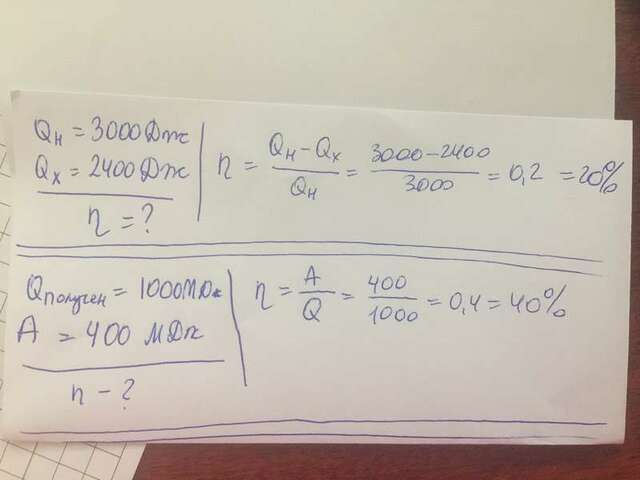 Qн = 3000 Дж
Qх = 2400 Дж
η = ?
η = (Qн – Qх)/Qн = (3000 – 2400)/3000 = 0,2 = 20%
Qполучен = 1000 МДж
A = 400 МДж
η – ?
η = A/Q = 400/1000 = 0,4 = 40%